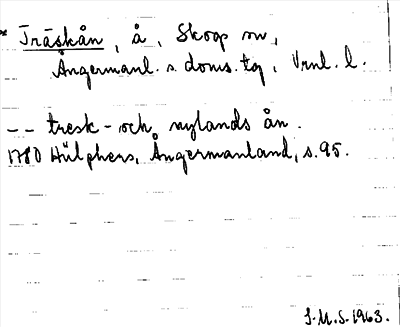 * Träskån, å, Skog sn,
Ångermanl. s. doms. tg, Vrnl. l.
-- tresk- och nylands ån.
1780 Hülphers, Ångermanland, s. 95.
S.M.S. 1963.